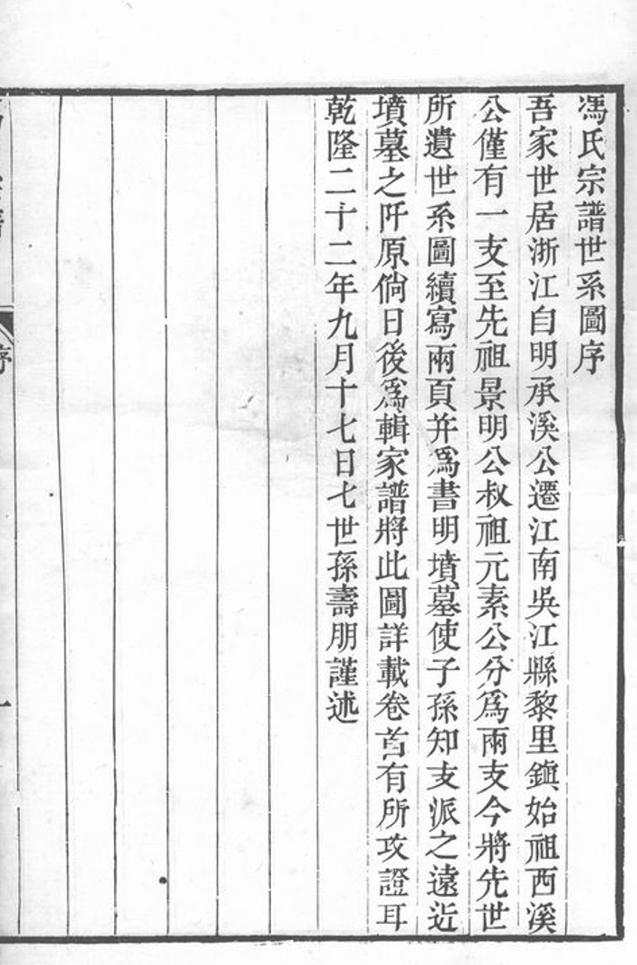 馮氏宗譜世系圖序
吾家世居浙江自明承溪公遷江南吳江縣黎里鎮始祖西溪
公僅有一支至先祖景明公叔祖元素公分爲兩支今將先世
所遺世系圖續寫兩頁并爲書明墳墓使子孫知支派之遠近
墳墓之阡原倘日後爲輯家譜將此圖詳載卷首有所攷證耳
乾隆二十二年九月十七日七世孫壽朋謹述
序
一